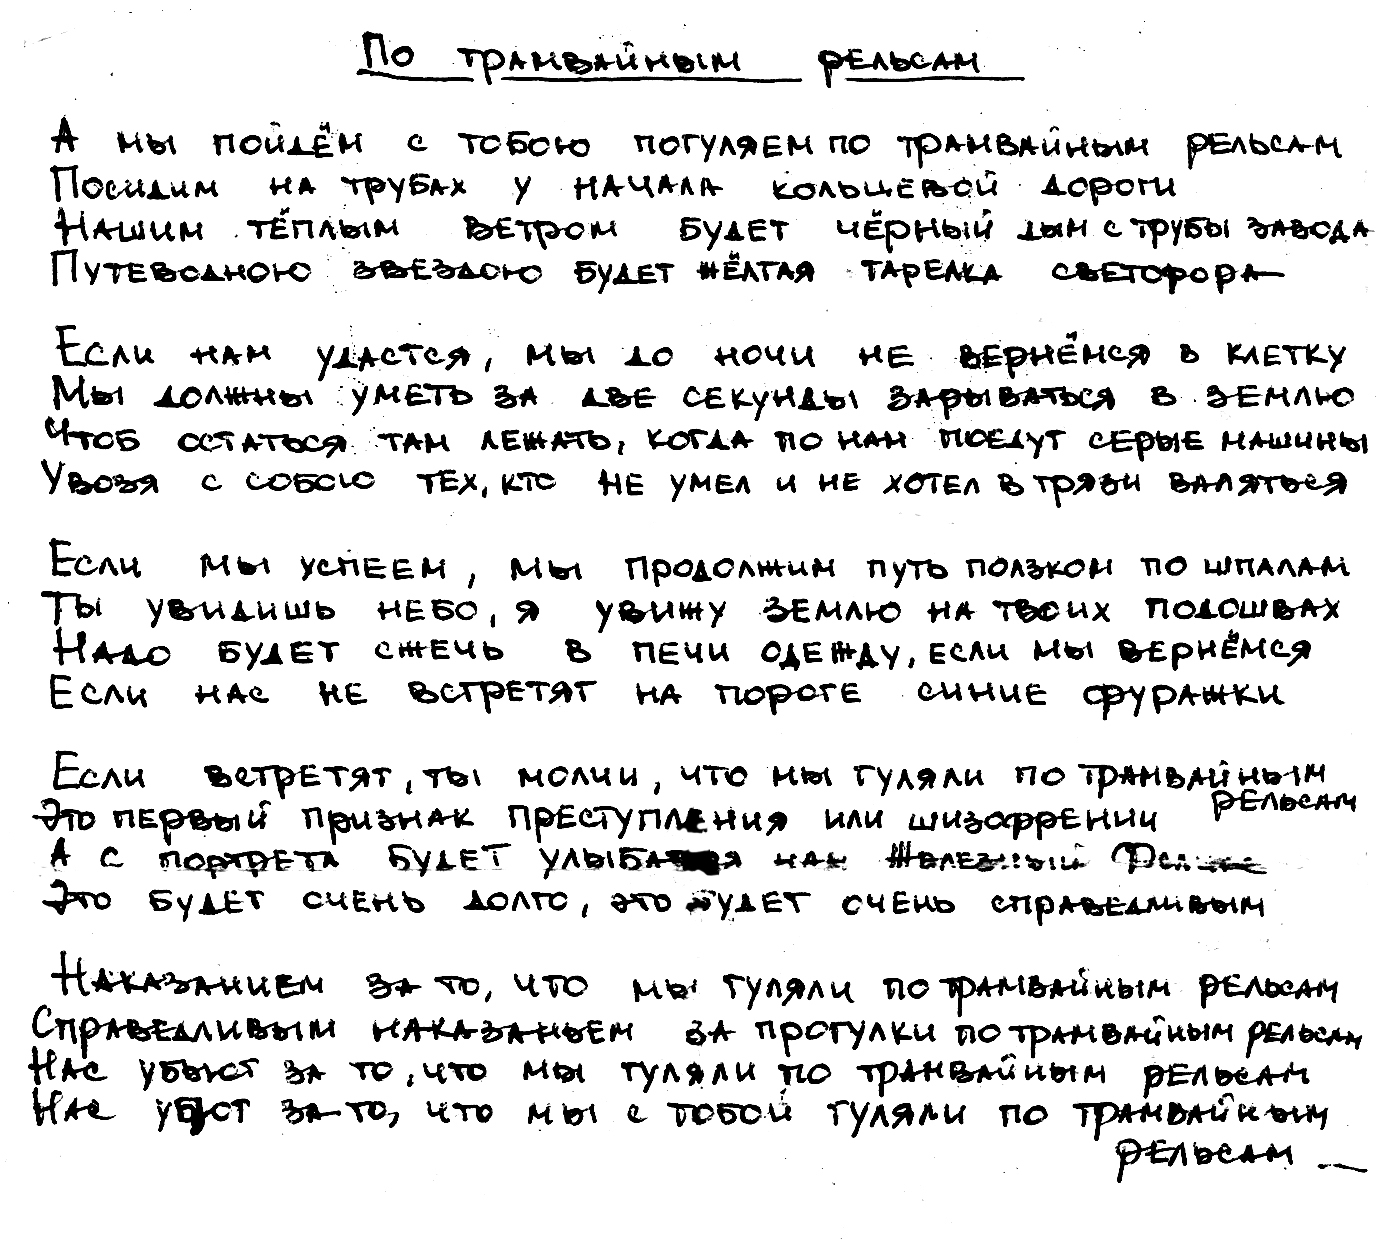 По трамвайным рельсам
А мы пойдём с тобою погуляем по трамвайным рельсам
Посидим на трубах у начала кольцевой дороги
Нашим тёплым ветром будет чёрный дым с трубы завода
Путеводною звездою будет жёлтая тарелка светофора
Если нам удастся, мы до ночи не вернёмся в клетку
Мы должны уметь за две секунды зарываться в землю
Чтоб остаться там лежать, когда по нам поедут серые машины
Увозя с собою тех, кто не умел и не хотел в грязи валяться
Если мы успеем, мы продолжим путь ползком по шпалам
Ты увидишь небо, я увижу землю на твоих подошвах
Надо будет сжечь в печи одежду, если мы вернёмся
Если нас не встретят на пороге синие фуражки
Если встретят, ты молчи, что мы гуляли по трамвайным
рельсам
Это первый признак преступления или шизофрении
А с портрета будет улыбаться нам Железный Феликс
Это будет очень долго, это будет очень справедливым
Наказанием за то, что мы гуляли по трамвайным рельсам
Справедливым наказаньем за прогулки по трамвайным рельсам
Нас убьют за то, что мы гуляли по трамвайным рельсам
Нас убьют за то, что мы с тобой гуляли по трамвайным
рельсам